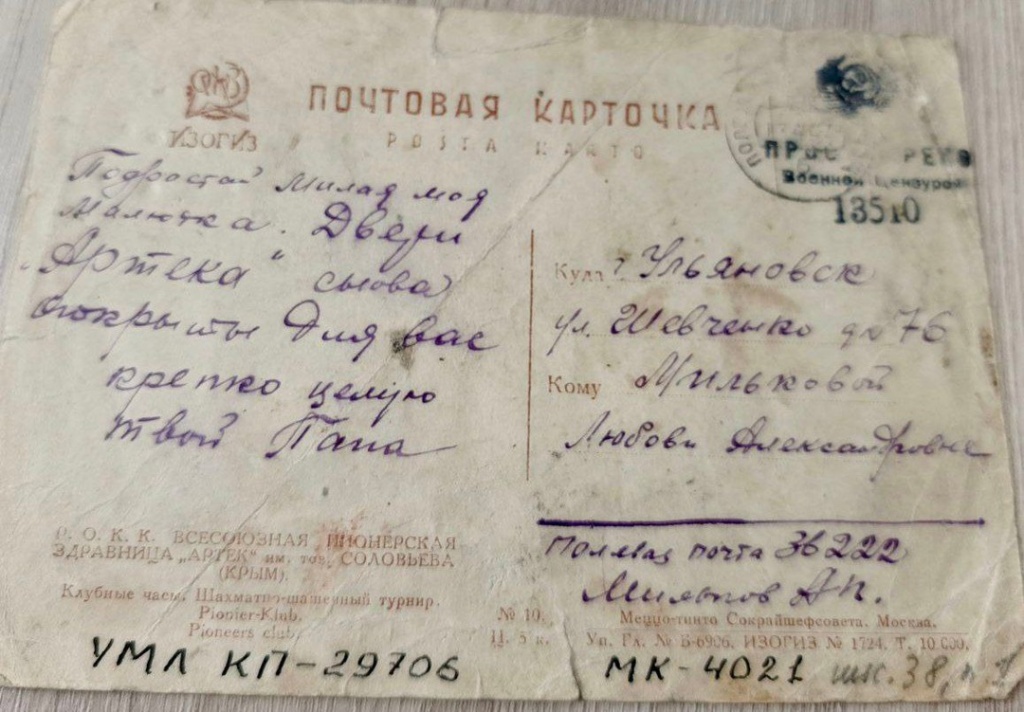 ИЗОГИЗ
ПОЧТОВАЯ КАРТОЧКА
POŜTA KARTO
Подростай милая моя
Малютка. Двери
"Артека" снова
открыты для вас
крепко целую
твой Папа
Военной Цензурой
13510
Куда г. Ульяновск
ул. Шевченко дч 76
Кому Мильковой
Любови Александровне
Полевая почта 36222
Мильков АП.
Р. О. К. К. ВСЕСОЮЗНАЯ ПИОНЕРСКАЯ
ЗДРАВНИЦА „АРТЕК" им. тов. СОЛОВЬЕВА
(КРЫМ).
Клубные часы. Шахматно-шашечный турнир.
Pionier-Klub.
Pioneers club.
№ 10.
Ц. 5 к.
Меццо-тинто Сокрайшефсовета. Москва.
Уп. Гл. № Б-6906. ИЗОГИЗ № 1724. Т. 10.000.
УМЛ КП-29706
МК-4021 шк. 38,